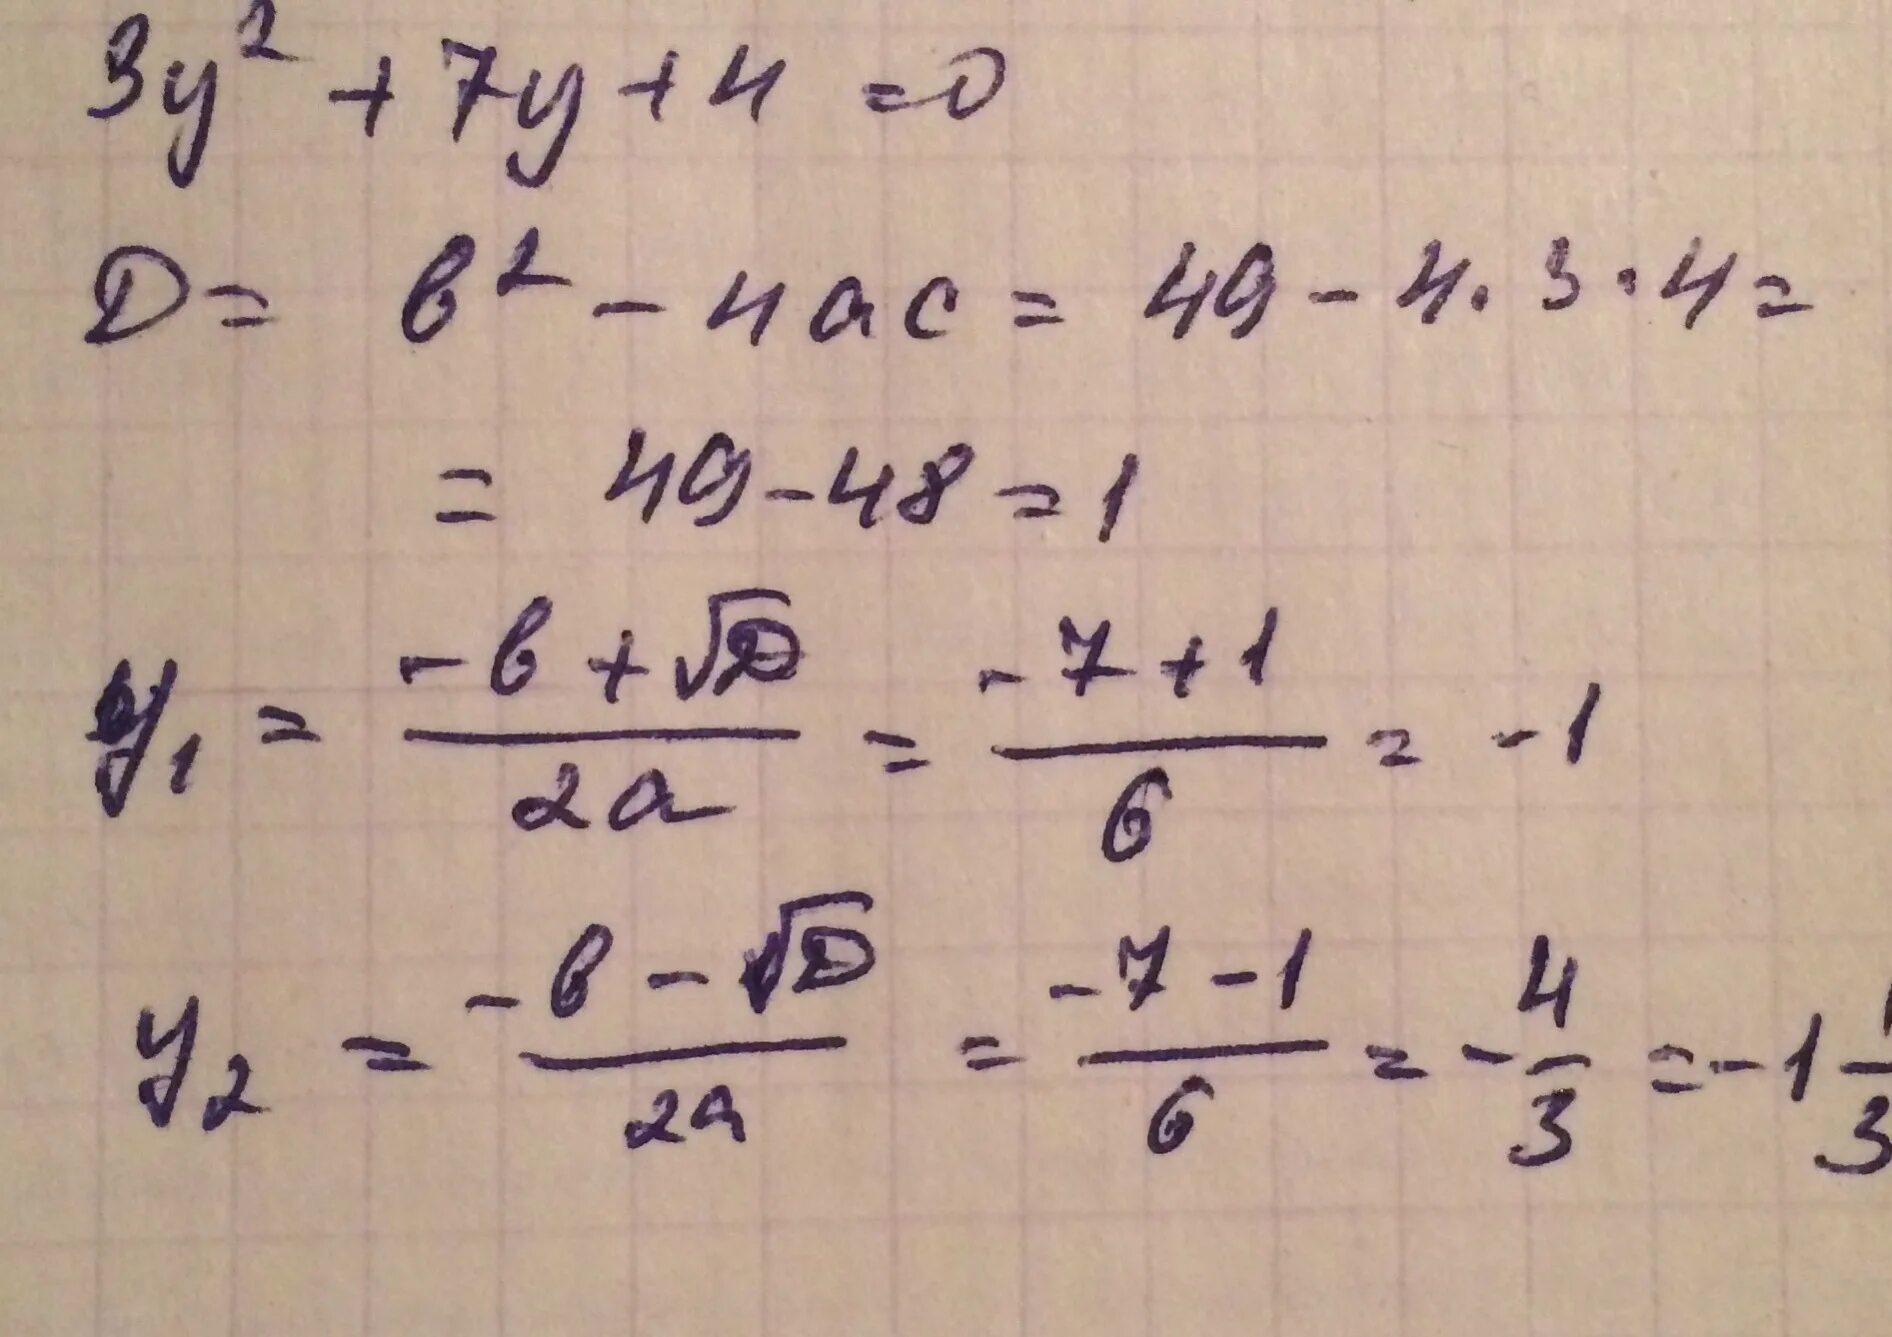 3y² + 7y + 4 = 0
D = b² - 4ac = 49 - 4·3·4 =
= 49 - 48 = 1
y₁ = (-b + √D)/(2a) = (-7 + 1)/6 = -1
y₂ = (-b - √D)/(2a) = (-7 - 1)/6 = -4/3 = -1 1/3